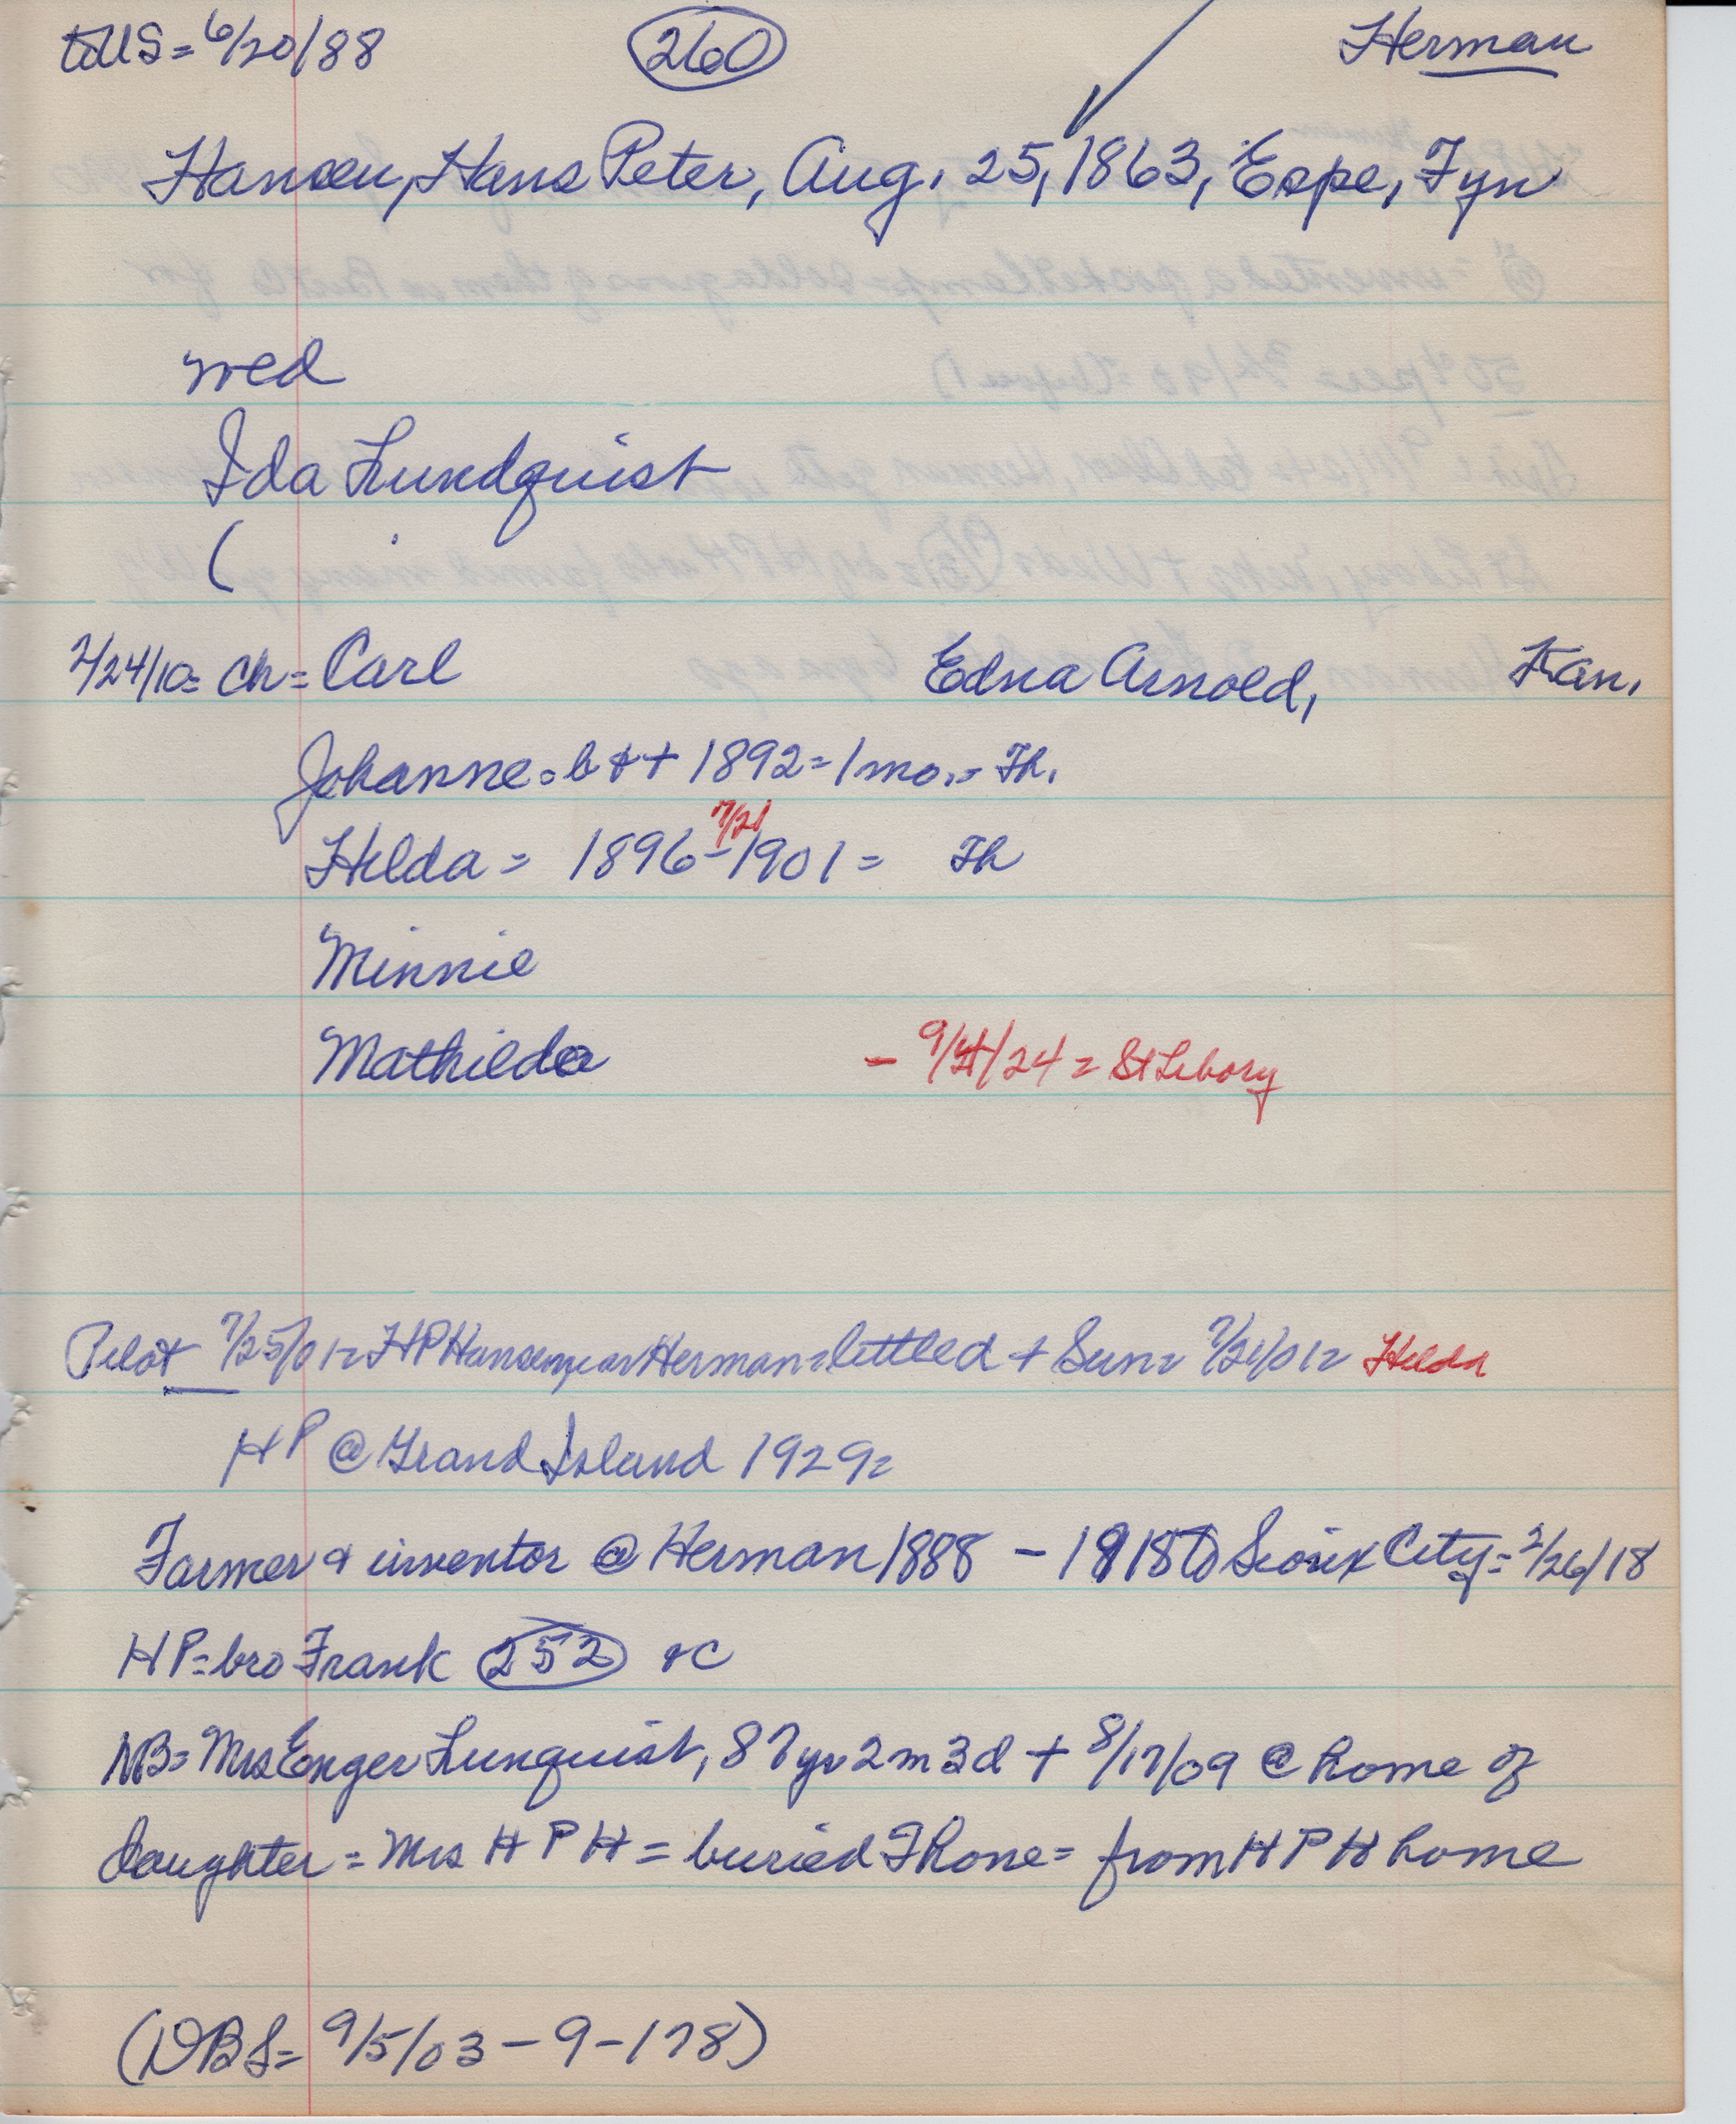 to US = 6/20/88 260 Herman
Hansen, Hans Peter, Aug. 25, 1863, Espe, Fyn
wed
Ida Lundquist
(
2/24/10 = ch = Carl Edna Arnold, Kan.
Johanne = b & + 1892 = 1 mo. = Th.
7/21
Hilda = 1896 - 1901 = Th
Minnie
Mathilda - 9/ /24 = St Libory
Pilot 7/25/01 = HP Hansen near Herman = little d + Sun = 7/21/01 = Hilda
HP @ Grand Island 1929 =
Farmer & inventor @ Herman 1888 - 1918 to Sioux City = 2/26/18
HP = bro Frank 252 &C
NB = Mrs Enger Lunquist, 87 yr 2 m 3 d + 8/17/09 @ home of
daughter = Mrs H P H = buried Thone = from H P H home
(DBS = 9/5/03 - 9 - 178)